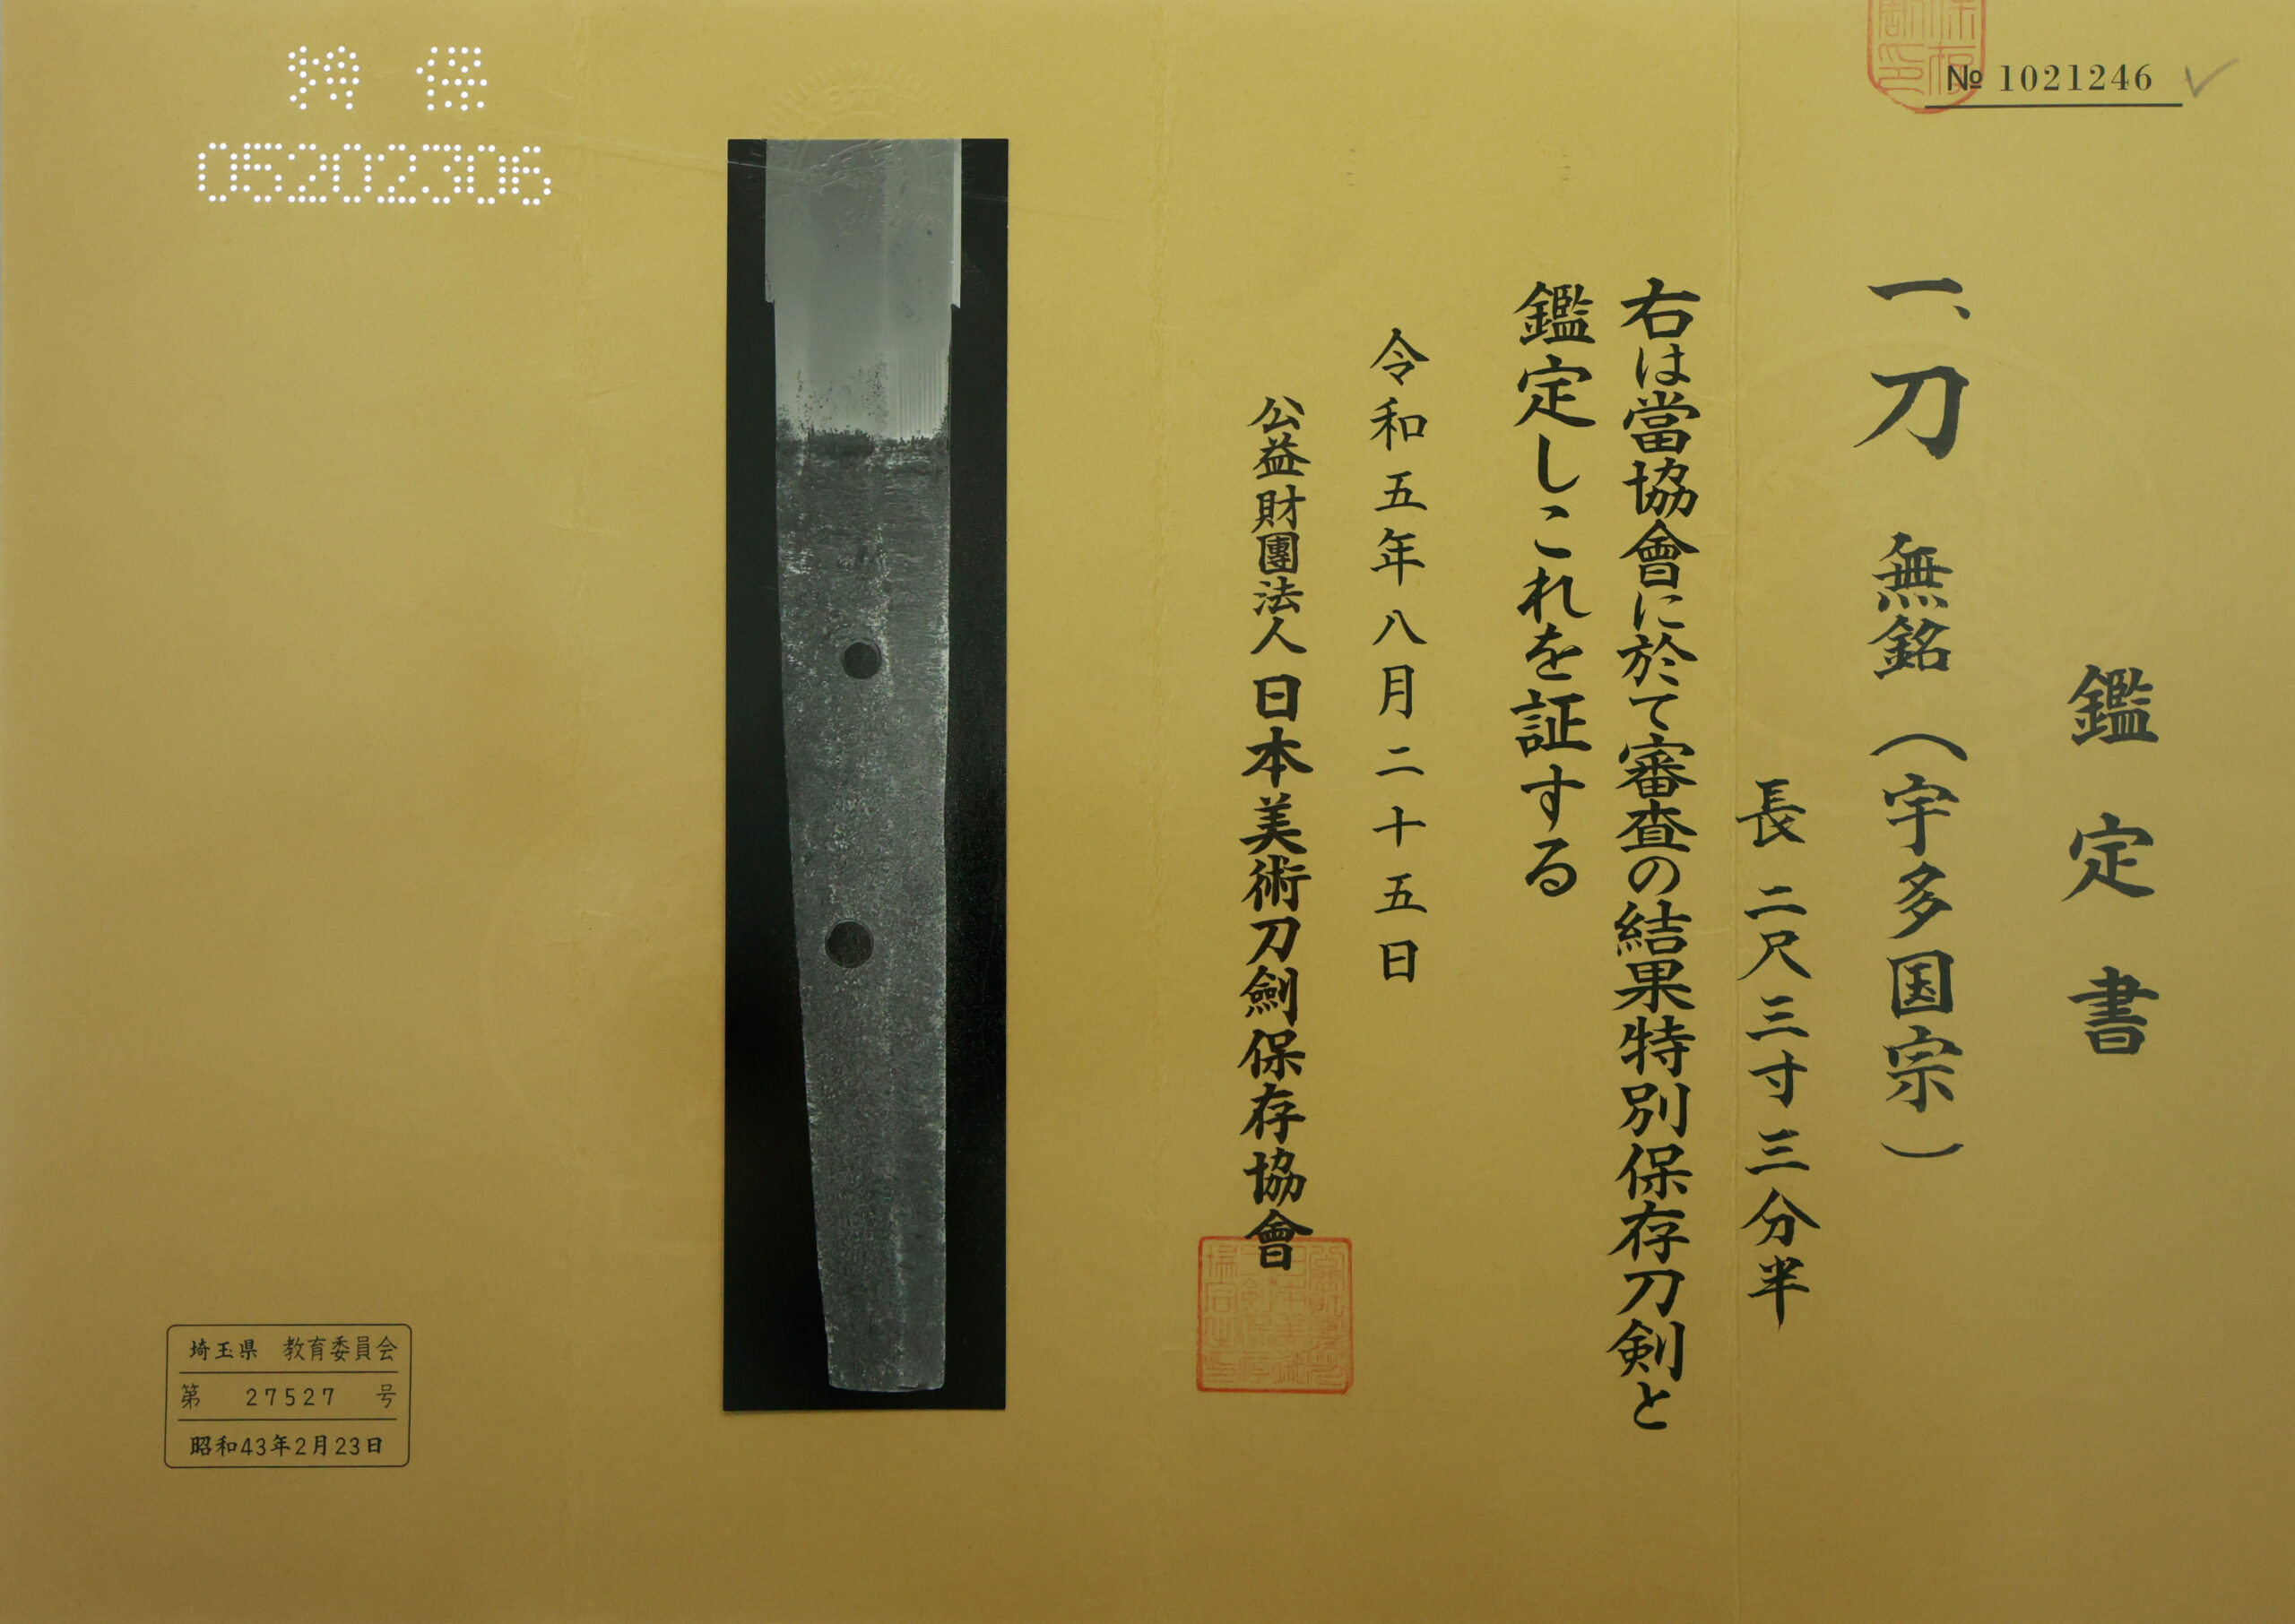 № 1021246
鑑定書
一、刀 無銘（宇多国宗）
長 二尺三寸三分半
右は當協會に於て審査の結果特別保存刀剣と
鑑定しこれを証する
令和五年八月二十五日
公益財團法人 日本美術刀劍保存協會
05202306
埼玉県 教育委員会
第 27527 号
昭和43年2月23日